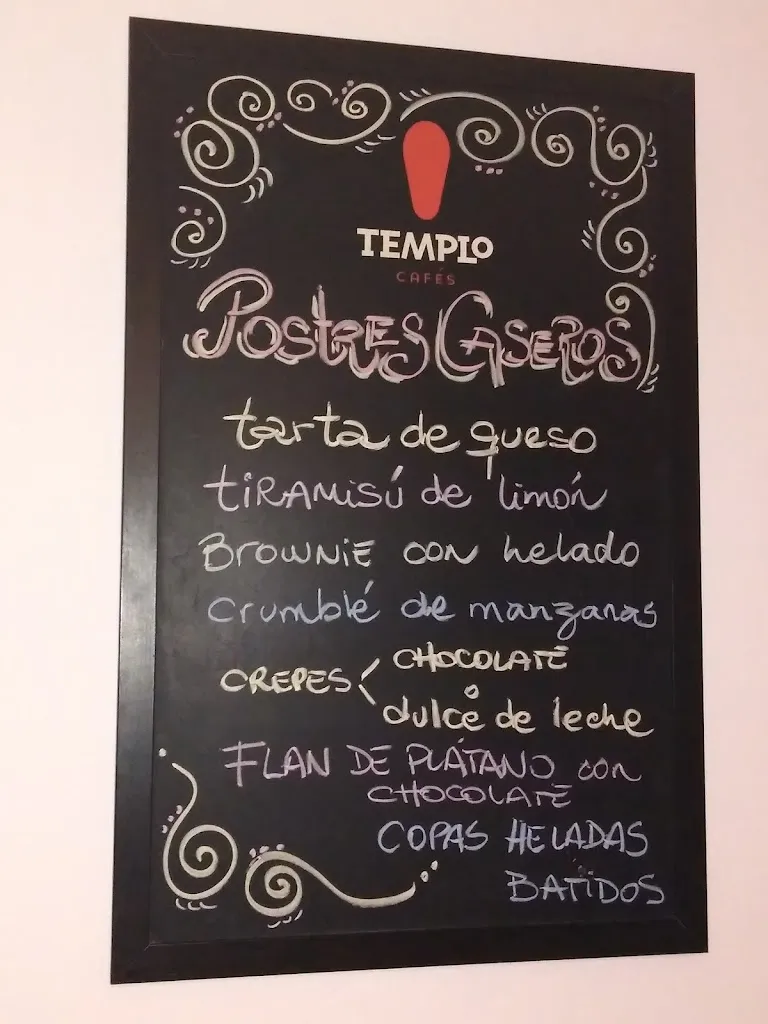 TEMPLO
CAFÉS
POSTRES CASEROS
tarta de queso
tiRAMisú de limón
BROWNiE con helado
crumblé de manzanas
CREPES < CHOCOLATE
o
dulce de leche
FLAN DE PLÁTANO con
CHOCOLATE
COPAS HELADAS
BATIDOS